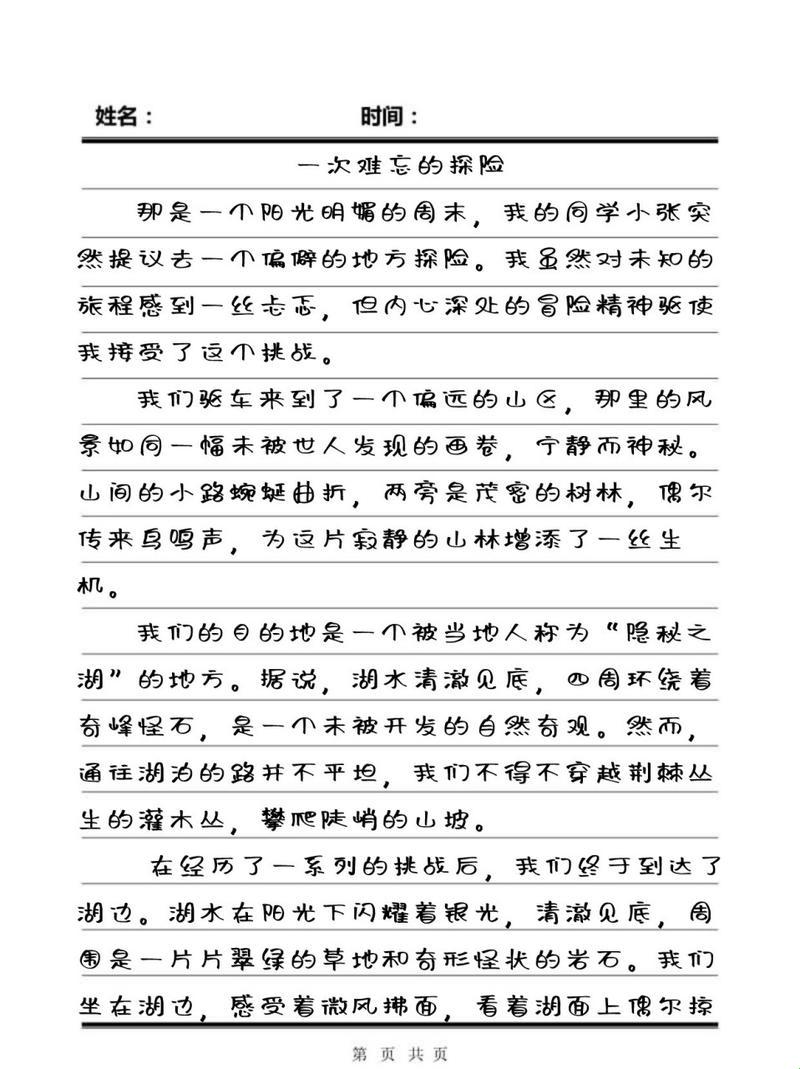 姓名： 时间：
一次难忘的探险
那是一个阳光明媚的周末，我的同学小张突
然提议去一个偏僻的地方探险。我虽然对未知的
旅程感到一丝忐忑，但内心深处的冒险精神驱使
我接受了这个挑战。
我们驱车来到了一个偏远的山区，那里的风
景如同一幅未被世人发现的画卷，宁静而神秘。
山间的小路蜿蜒曲折，两旁是茂密的树林，偶尔
传来鸟鸣声，为这片寂静的山林增添了一丝生
机。
我们的目的地是一个被当地人称为“隐秘之
湖”的地方。据说，湖水清澈见底，四周环绕着
奇峰怪石，是一个未被开发的自然奇观。然而，
通往湖泊的路并不平坦，我们不得不穿越荆棘丛
生的灌木丛，攀爬陡峭的山坡。
在经历了一系列的挑战后，我们终于到达了
湖边。湖水在阳光下闪耀着银光，清澈见底，周
围是一片片翠绿的草地和奇形怪状的岩石。我们
坐在湖边，感受着微风拂面，看着湖面上偶尔掠
第 页 共 页